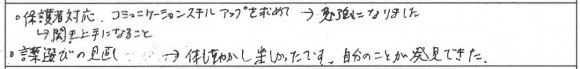 ・保護者対応、コミュニケーションスキルアップを求めて → 勉強になりました
↳聞き上手になること
・言葉選びの → 体も動かし楽しかったです。自分のことが発見できた。